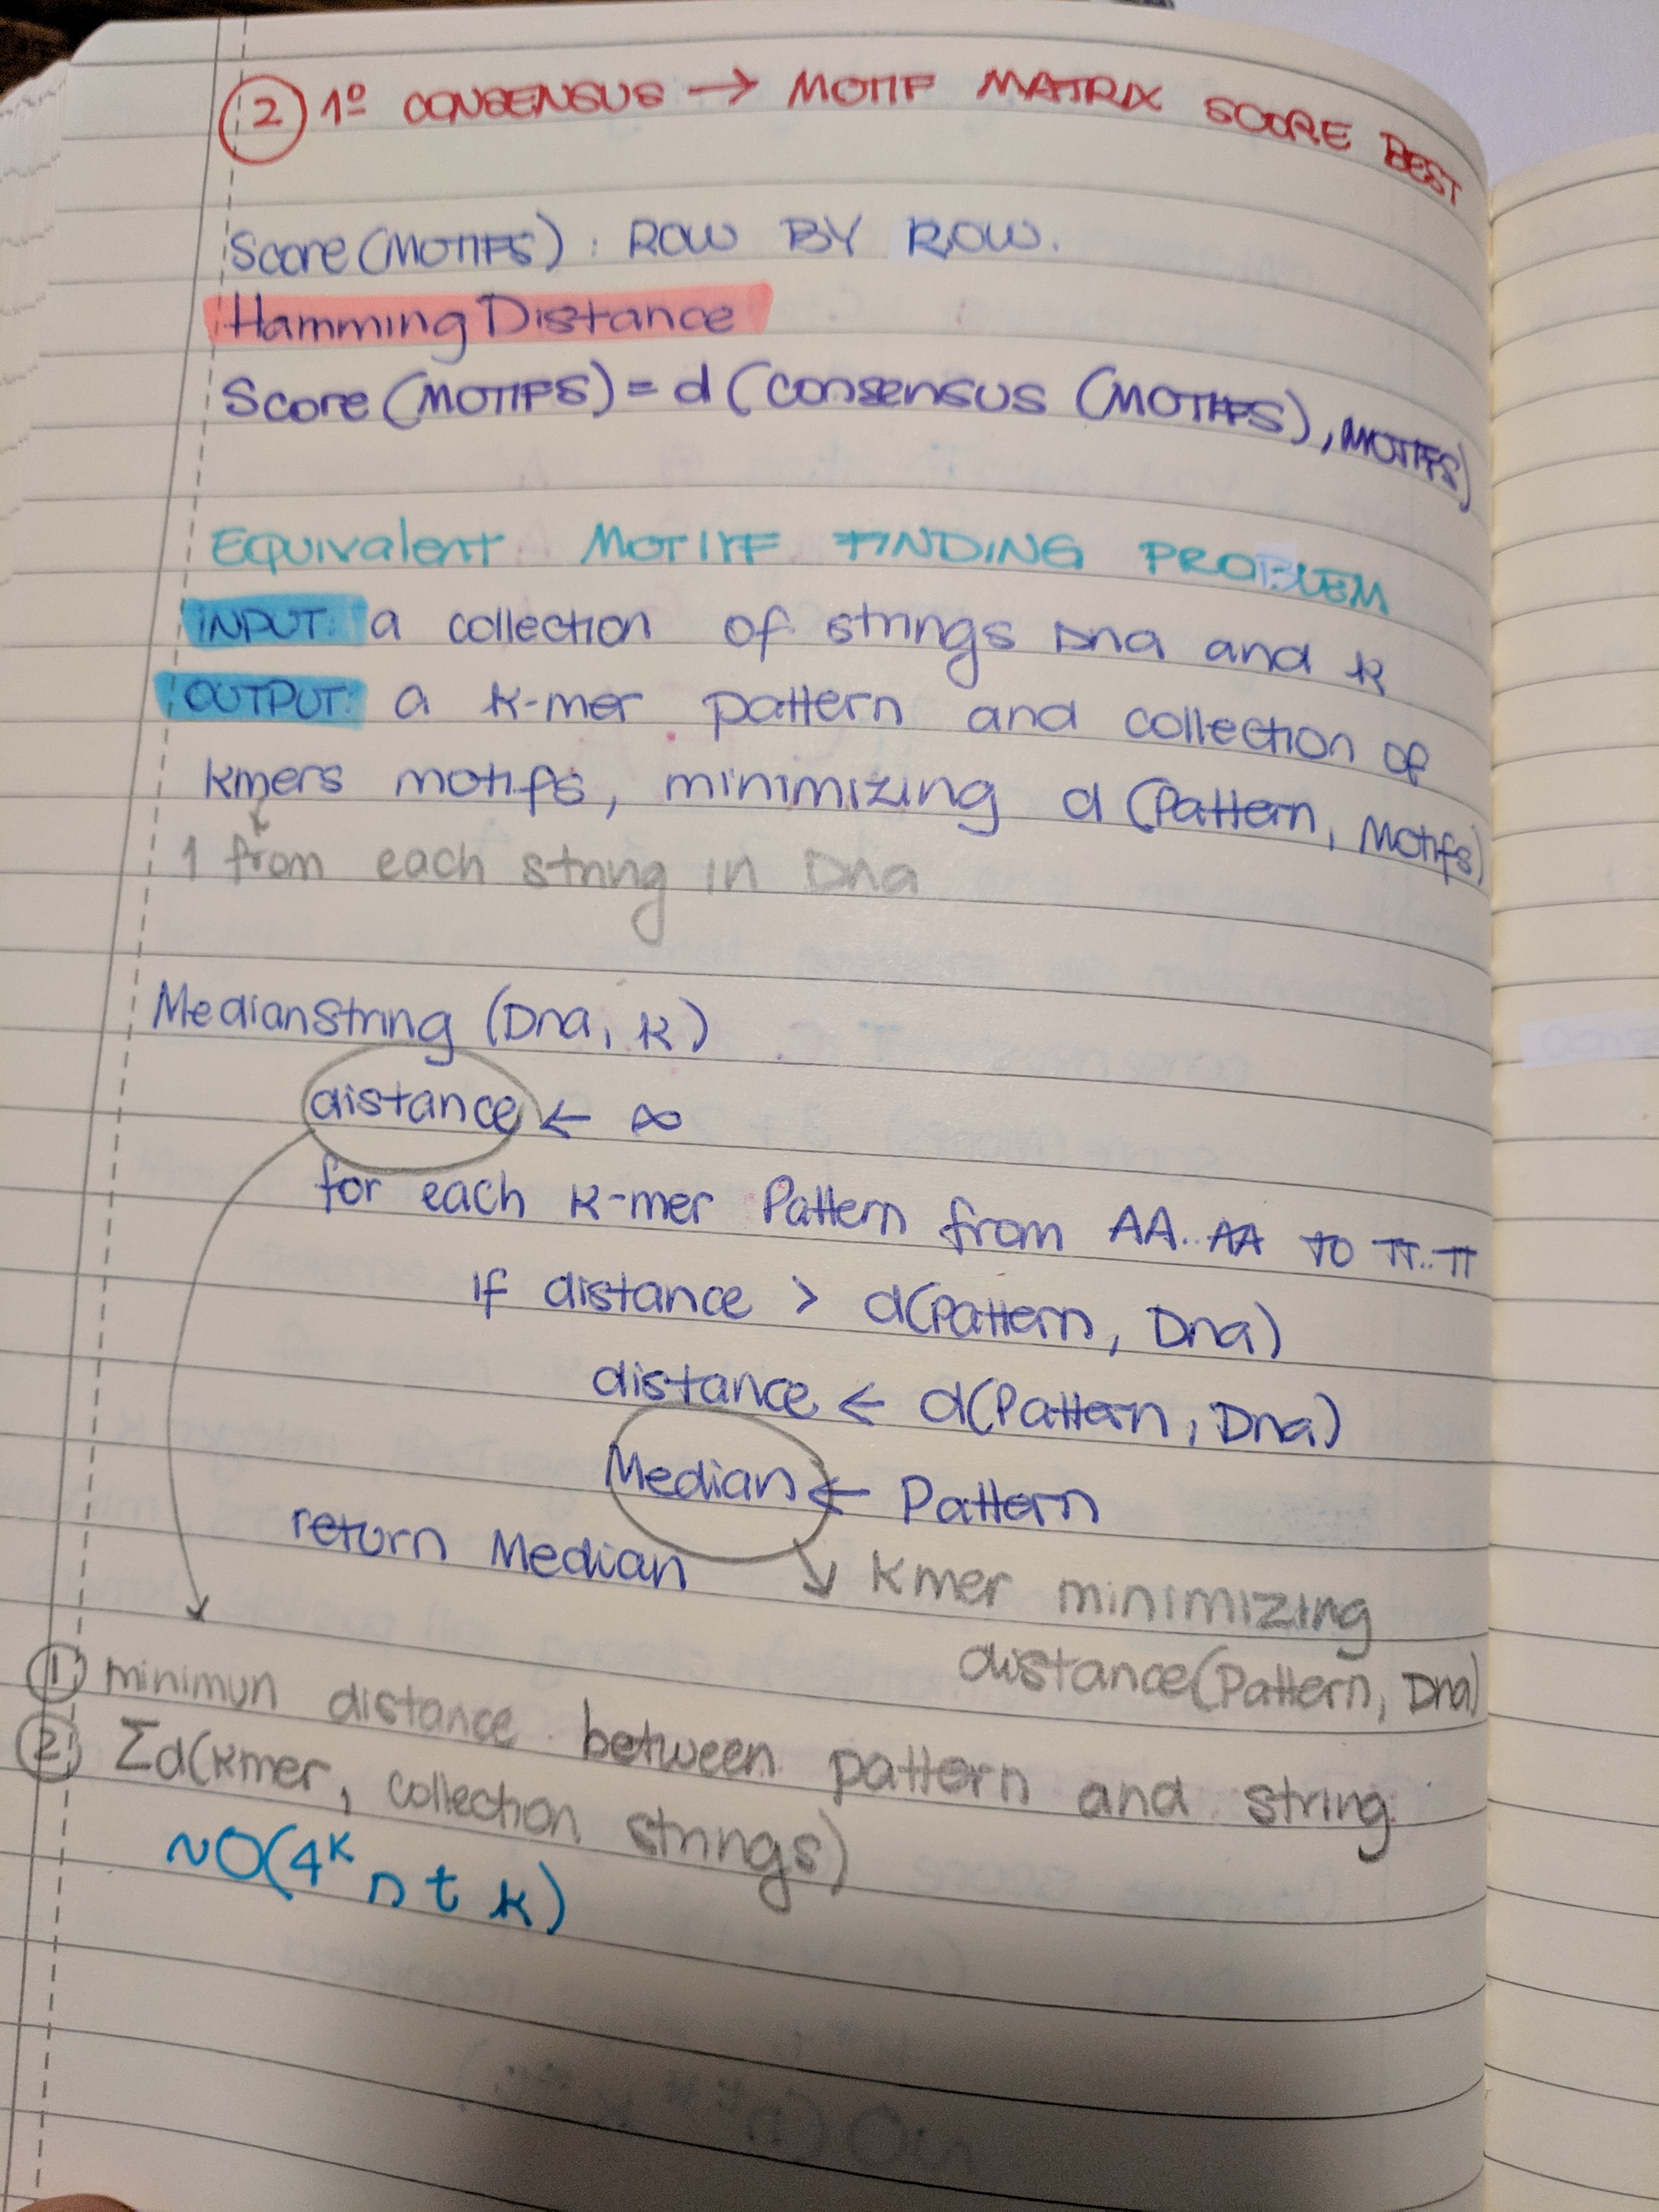 2 1º CONSENSUS → MOTIF MATRIX SCORE BEST
Score (MOTIFS) : ROW BY ROW.
Hamming Distance
Score (MOTIFS) = d (consensus (MOTIFS), MOTIFS)
EQUIVALENT MOTIF FINDING PROBLEM
INPUT: a collection of strings Dna and k
OUTPUT: a k-mer pattern and collection of
kmers motifs, minimizing d (Pattern, Motifs)
1 from each string in Dna
MedianString (Dna, k)
distance ← ∞
for each k-mer Pattern from AA..AA TO TT..TT
If distance > d(Pattern, Dna)
distance ← d(Pattern, Dna)
Median ← Pattern
return Median
↘ Kmer minimizing
distance(Pattern, Dna)
1 minimun distance between pattern and string
2 Σd(kmer, collection strings)
~O(4^k n t k)